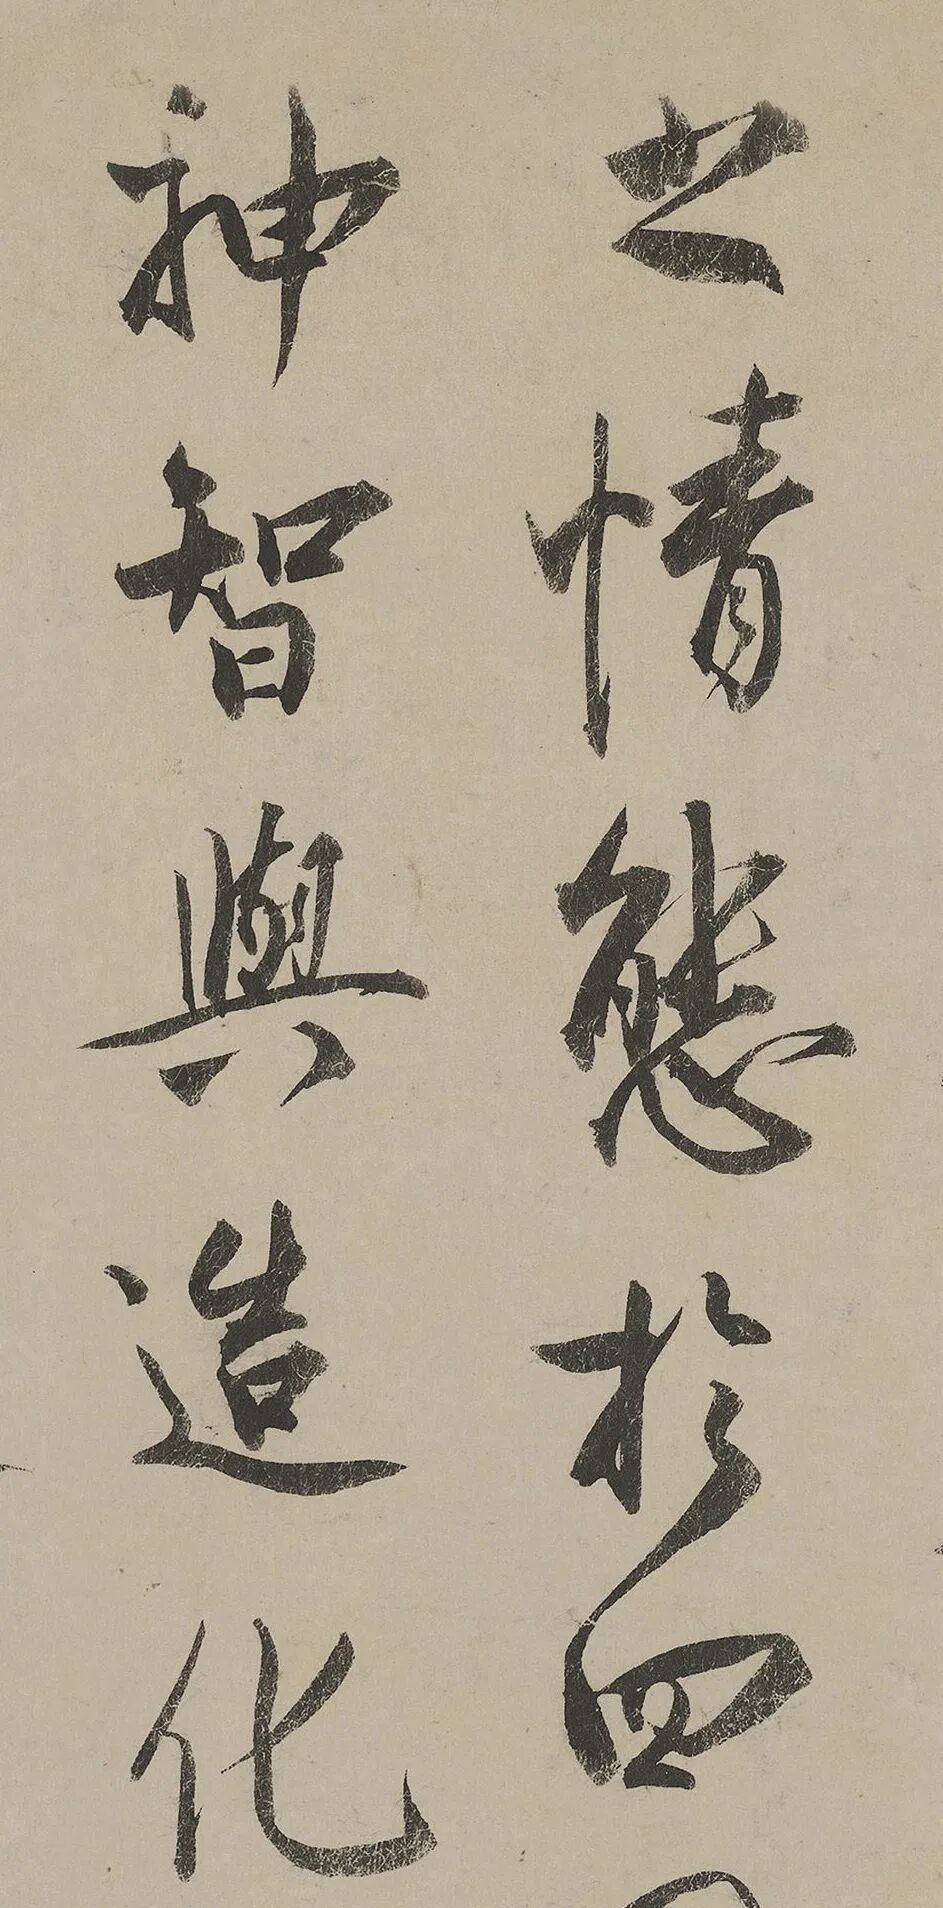 之情態於四
神智與造化